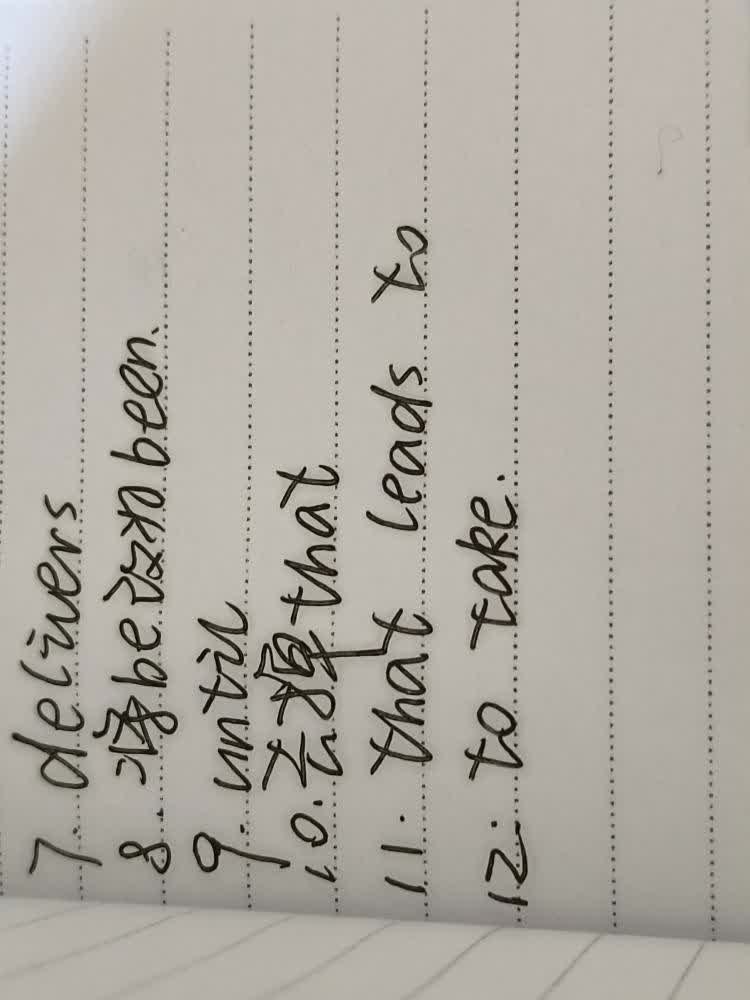 7. delivers
8. 将be改为been.
9. until
10. 去掉that
11. that leads to
12. to take.